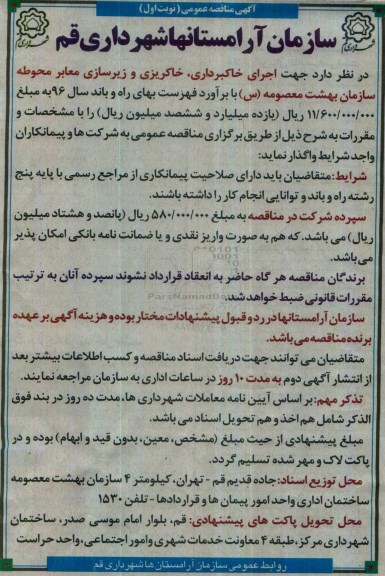 آگهی مناقصه عمومی (نوبت اول)
سازمان آرامستانها شهرداری قم
در نظر دارد جهت اجرای خاکبرداری، خاکریزی و زیرسازی معابر محوطه
سازمان بهشت معصومه (س) با برآورد فهرست بهای راه و باند سال ۹۶ به مبلغ
۱۱/۶۰۰/۰۰۰/۰۰۰ ریال (یازده میلیارد و ششصد میلیون ریال) را با مشخصات و
مقررات به شرح ذیل از طریق برگزاری مناقصه عمومی به شرکت ها و پیمانکاران
واجد شرایط واگذار نماید:
شرایط: متقاضیان باید دارای صلاحیت پیمانکاری از مراجع رسمی با پایه پنج
رشته راه و باند و توانایی انجام کار را داشته باشند.
سپرده شرکت در مناقصه به مبلغ ۵۸۰/۰۰۰/۰۰۰ ریال (پانصد و هشتاد میلیون
ریال) می باشد. که هم به صورت واریز نقدی و یا ضمانت نامه بانکی امکان پذیر
می باشد.
برندگان مناقصه هر گاه حاضر به انعقاد قرارداد نشوند سپرده آنان به ترتیب
مقررات قانونی ضبط خواهد شد.
سازمان آرامستانها در رد و قبول پیشنهادات مختار بوده و هزینه آگهی بر عهده
برنده مناقصه می باشد.
متقاضیان می توانند جهت دریافت اسناد مناقصه و کسب اطلاعات بیشتر بعد
از انتشار آگهی دوم به مدت ۱۰ روز در ساعات اداری به سازمان مراجعه نمایند.
تذکر مهم: بر اساس آیین نامه معاملات شهرداری ها، مدت ده روز در بند فوق
الذکر شامل هم اخذ و هم تحویل اسناد می باشد.
مبلغ پیشنهادی از حیث مبلغ (مشخص، معین، بدون قید و ابهام) بوده و در
پاکت لاک و مهر شده تسلیم گردد.
محل توزیع اسناد: جاده قدیم قم - تهران، کیلومتر ۴ سازمان بهشت معصومه
ساختمان اداری واحد امور پیمان ها و قراردادها - تلفن ۱۵۳۰
محل تحویل پاکت های پیشنهادی: قم، بلوار امام موسی صدر، ساختمان
شهرداری مرکز، طبقه ۴ معاونت خدمات شهری و امور اجتماعی، واحد حراست
روابط عمومی سازمان آرامستان ها شهرداری قم